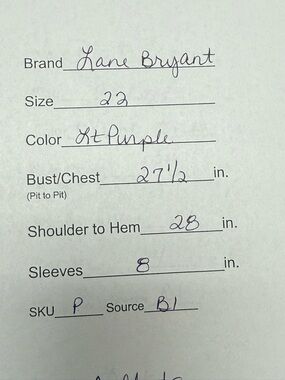 Brand Lane Bryant
Size 22
Color Lt Purple
Bust/Chest 27 1/2 in.
(Pit to Pit)
Shoulder to Hem 28 in.
Sleeves 8 in.
SKU P Source B1